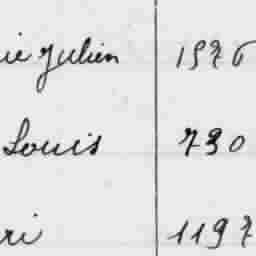 ie Julien 1576
Louis 730
ri 1197